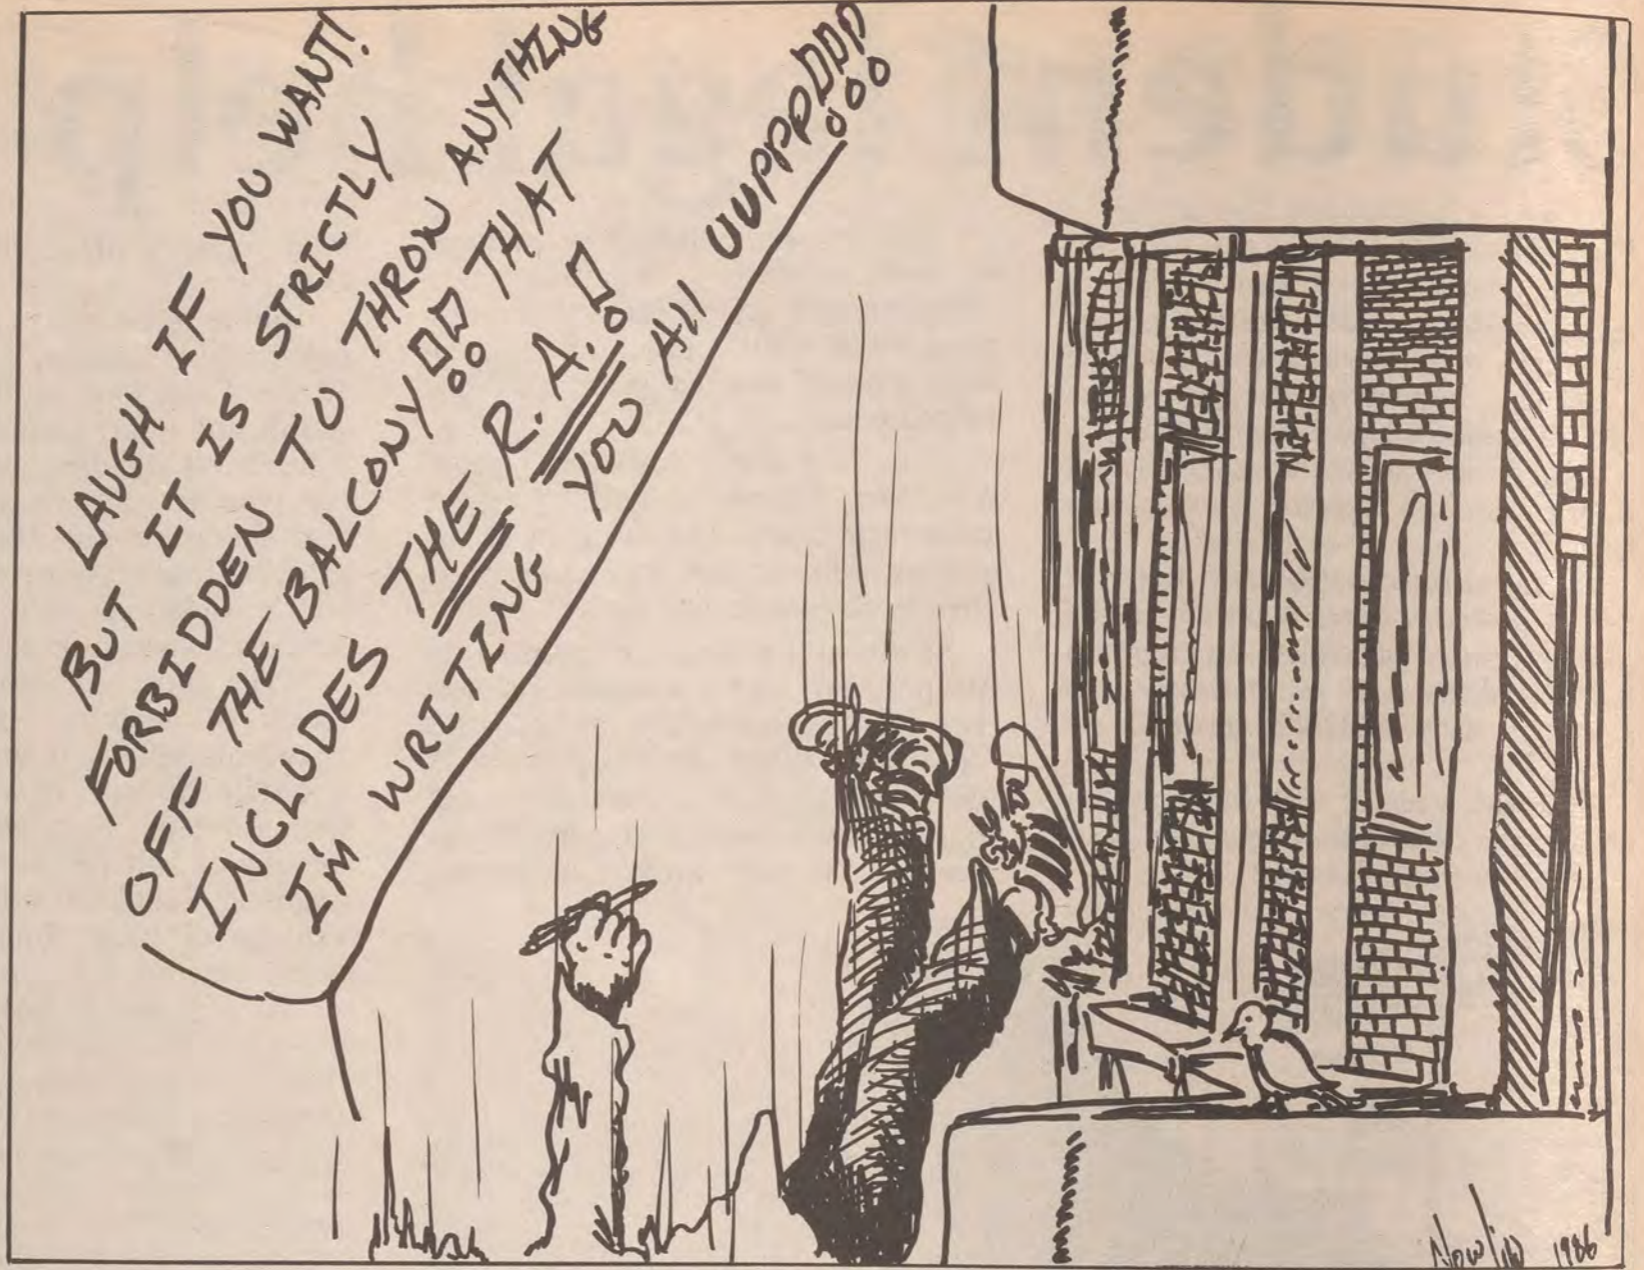 LAUGH IF YOU WANT!
BUT IT IS STRICTLY
FORBIDDEN TO THROW ANYTHING
OFF THE BALCONY!! THAT
INCLUDES THE R.A.!
I'M WRITING YOU All UUPPP!!!
1986